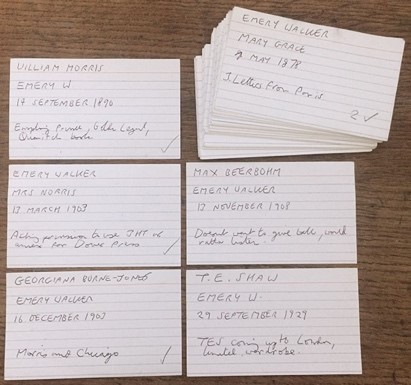 WILLIAM MORRIS
EMERY W
17 SEPTEMBER 1890
Golden Legend,
EMERY WALKER
MARY GRACE
9 MAY 1878
J. Letters from Paris
2 ✓
EMERY WALKER
MRS NORRIS
13 MARCH 1903
Asking permission to use JHT as
for Doves Press
MAX BEERBOHM
EMERY WALKER
13 NOVEMBER 1908
Doesn't want to give talk, would
rather listen.
GEORGIANA BURNE-JONES
EMERY WALKER
16 DECEMBER 1903
Morris and Chicago
T.E. SHAW
EMERY W.
29 SEPTEMBER 1929
TES coming up to London,
limited wardrobe.